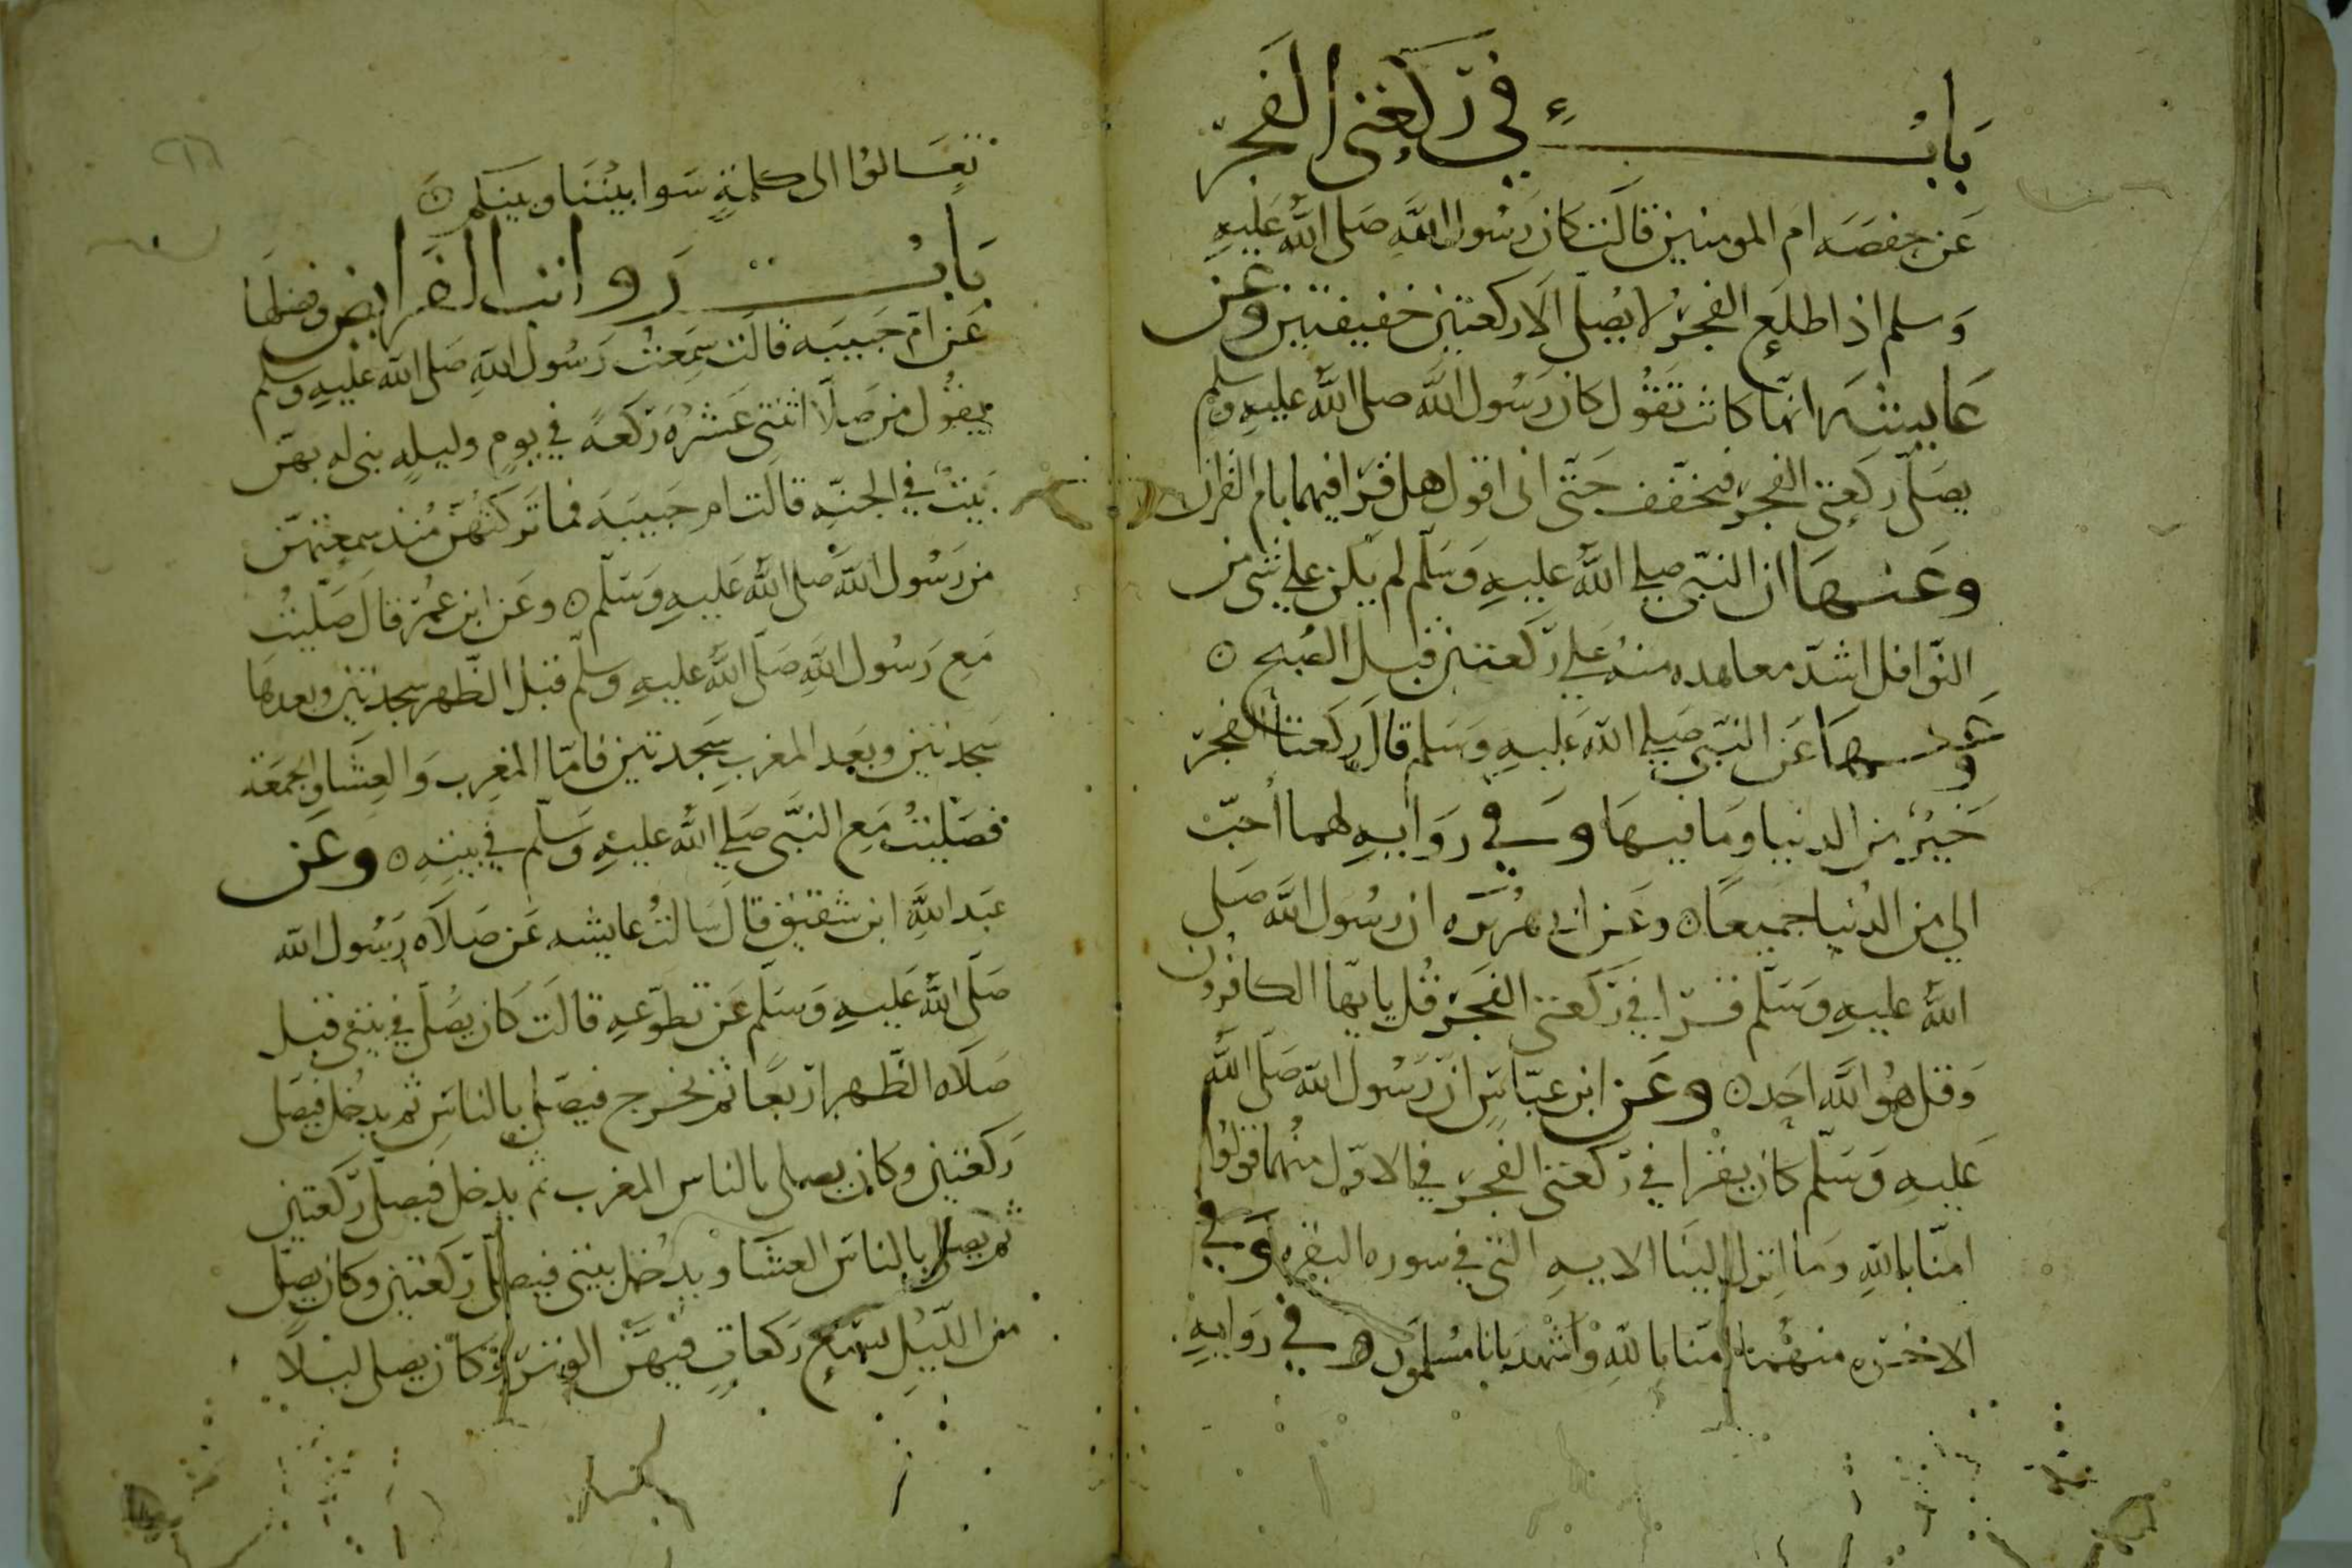 باب في ركعتي الفجر
عن حفصه ام المومنين قالت كان رسول الله صلى الله عليه
وسلم اذا طلع الفجر لا يصلى الا ركعتين خفيفتين وعن
عايشه انها كانت تقول كان رسول الله صلى الله عليه وسلم
يصلى ركعتى الفجر فيخفف حتى انى اقول هل قرا فيهما بام القران
وعنها ان النبى صلى الله عليه وسلم لم يكن على شى من
النوافل اشد معاهده منه على ركعتين قبل الصبح ن
وعنها عن النبى صلى الله عليه وسلم قال ركعتا الفجر
خير من الدنيا وما فيها وفي روايه لهما احب
الي من الدنيا جميعا ن وعن ابى هريره ان رسول الله صلى
الله عليه وسلم قرا في ركعتى الفجر قل يايها الكافرون
وقل هو الله احد ن وعن ابن عباس ان رسول الله صلى الله
عليه وسلم كان يقرا في ركعتى الفجر في الاولى منهما قولوا
امنا بالله وما انزل الينا الايه التى في سوره البقره وفي
الاخره منهما امنا بالله واشهد بانا مسلمون ه في روايه
تعالوا الى كلمة سوا بيننا وبينكم ن
باب رواتب الفرايض وفضلها
عن ام حبيبه قالت سمعت رسول الله صلى الله عليه وسلم
يقول من صلا اثنتى عشره ركعه في يوم وليله بنى له بهن
بيت في الجنه قالت ام حبيبه فما تركتهن منذ سمعتهن
من رسول الله صلى الله عليه وسلم ن وعن ابن عمر قال صليت
مع رسول الله صلى الله عليه وسلم قبل الظهر سجدتين وبعدها
سجدتين وبعد المغرب سجدتين فاما المغرب والعشا والجمعة
فصليت مع النبى صلى الله عليه وسلم في بيته ن وعن
عبد الله ابن شقيق قال سالت عايشه عن صلاه رسول الله
صلى الله عليه وسلم عن تطوعه قالت كان يصلى في بيتى قبل
صلاه الظهر اربعا ثم يخرج فيصلى بالناس ثم يدخل فيصلى
ركعتين وكان يصلى بالناس المغرب ثم يدخل فيصلى ركعتين
ثم يصلى بالناس العشا ويدخل بيتى فيصلى ركعتين وكان يصلى
من الليل تسع ركعات فيهن الوتر وكان يصلى ليلا